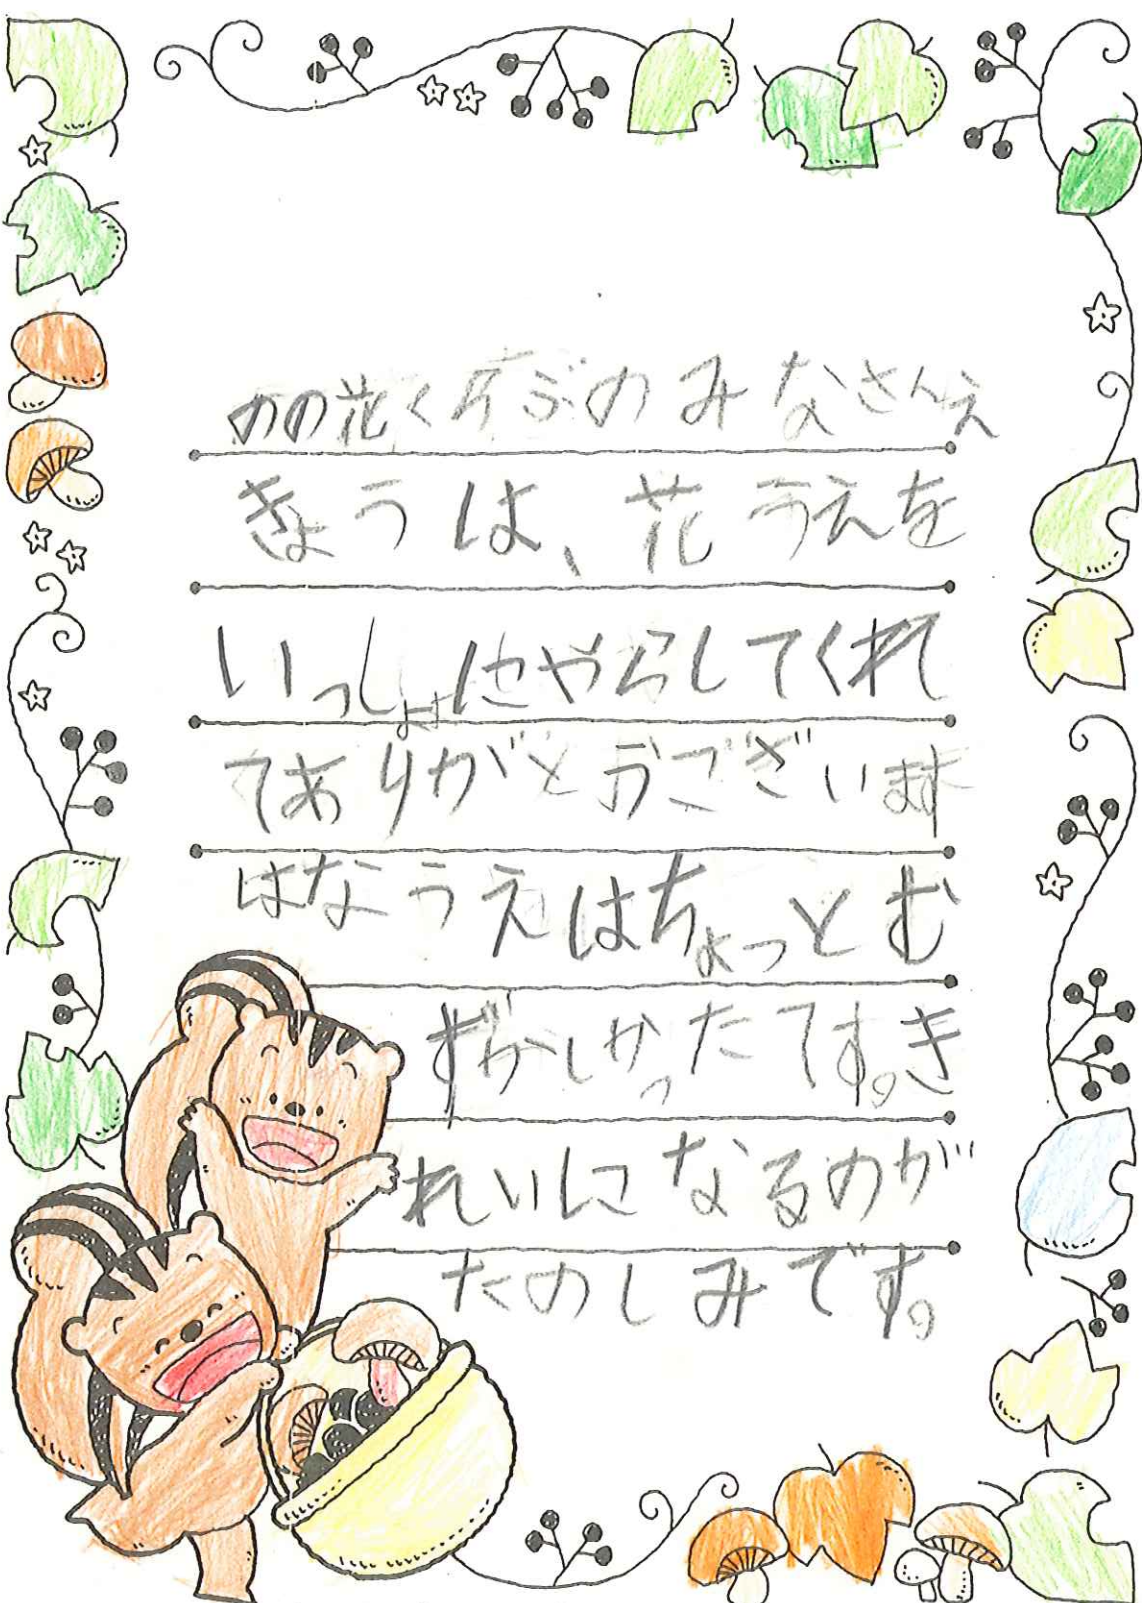 のの花くらぶのみなさんえ
きょうは、花うえを
いっしょにやらしてくれ
てありがとうございます
はなうえはちょっとむ
ずかしかったてす。き
れいになるのが
たのしみです。